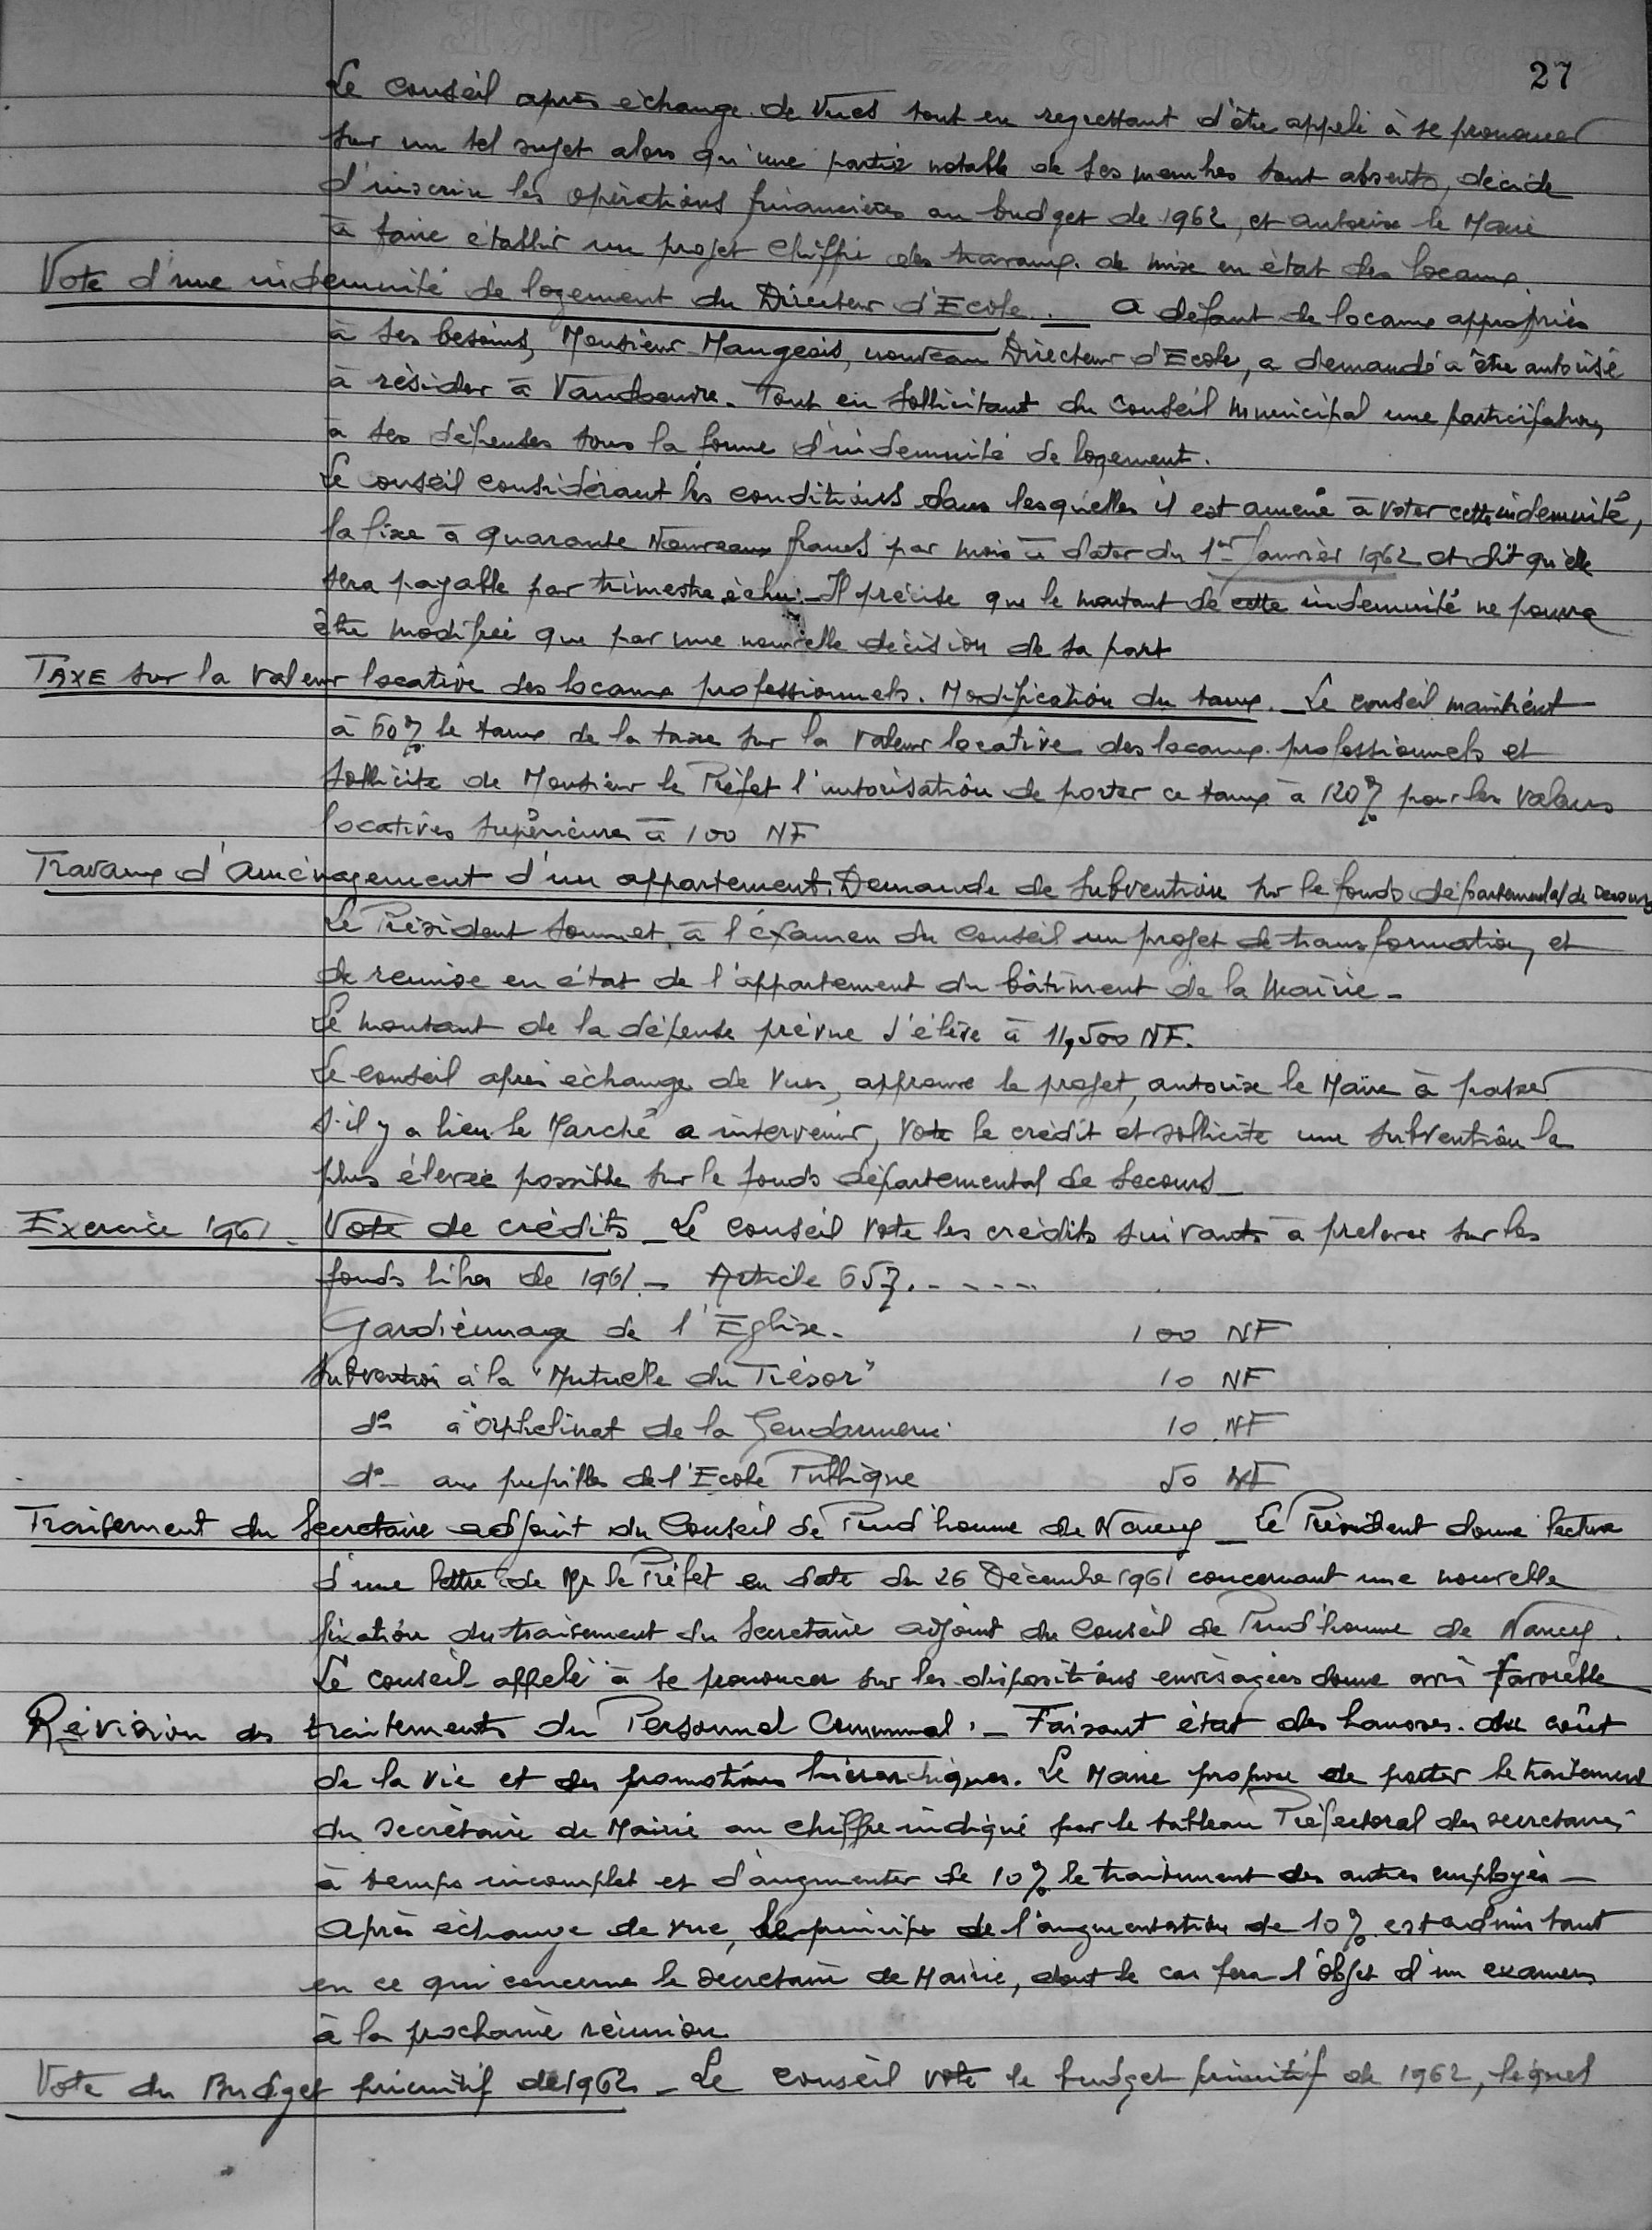 27
Le Conseil après échange de vues tout en regrettant d'être appelé à se prononcer
sur un tel sujet alors qu'une partie notable de ses membres sont absents, décide
d'inscrire les opérations financières au budget de 1962, et autorise le Maire
à faire établir un projet chiffré des travaux de mise en état des locaux.
Vote d'une indemnité de logement du Directeur d'Ecole. _ A défaut de locaux appropriés
à ses besoins, Monsieur Mangeois, nouveau Directeur d'Ecole, a demandé à être autorisé
à résider à Vandoeuvre. Tout en sollicitant du Conseil Municipal une participation
à ses dépenses sous la forme d'indemnité de logement.
Le Conseil considérant les conditions dans lesquelles il est amené à voter cette indemnité,
la fixe à quarante Nouveaux francs par mois à dater du 1er Janvier 1962 et dit qu'elle
sera payable par trimestre échu. _ Il précise que le montant de cette indemnité ne pourra
être modifié que par une nouvelle décision de sa part
TAXE sur la valeur locative des locaux professionnels. Modification du taux. _ Le conseil maintient
à 60% le taux de la taxe sur la valeur locative des locaux professionnels et
sollicite de Monsieur le Préfet l'autorisation de porter ce taux à 120% pour les valeurs
locatives supérieures à 100 NF
Travaux d'Aménagement d'un appartement. Demande de subvention sur le fonds départemental de secours
Le Président soumet à l'examen du conseil un projet de transformation, et
de remise en état de l'appartement du bâtiment de la Mairie _
Le montant de la dépense prévue s'élève à 11,500 NF.
Le conseil après échange de vues, approuve le projet, autorise le Maire à passer
s'il y a lieu le Marché a intervenir, vote le crédit et sollicite une subvention la
plus élevée possible sur le fonds départemental de secours _
Exercice 1961. Vote de crédits _ Le conseil vote les crédits suivants à prelever sur les
fonds libres de 1961. _ Article 657. - - - -
Gardiennage de l'Eglise. 100 NF
Subvention à la "Mutuelle du Trésor" 10 NF
do à Orphelinat de la Gendarmerie 10 NF
do aux pupilles de l'Ecole Publique 50 NF
Traitement du Secretaire adjoint du Conseil de Prud'homme de Nancy _ Le Président donne lecture
d'une lettre de Mr le Préfet en date du 26 Décembre 1961 concernant une nouvelle
fixation du traitement du Secretaire adjoint du Conseil de Prud'homme de Nancy.
Le conseil appelé à se prononcer sur les dispositions envisagées donne avis favorable
Révision des traitements du Personnel Communal. _ Faisant état des hausses du coût
de la vie et des promotions hiérarchiques. Le Maire propose de porter le traitement
du Secrétaire de Mairie au chiffre indiqué par le tableau Préfectoral des secretaires
à temps incomplet et d'augmenter de 10% le traitement des autres employés _
Après échange de vue, le principe de l'augmentation de 10% est admis sauf
en ce qui concerne le secretaire de Mairie, dont le cas fera l'objet d'un examen
à la prochaine réunion.
Vote du Budget primitif de 1962 _ Le Conseil vote le budget primitif de 1962, lequel